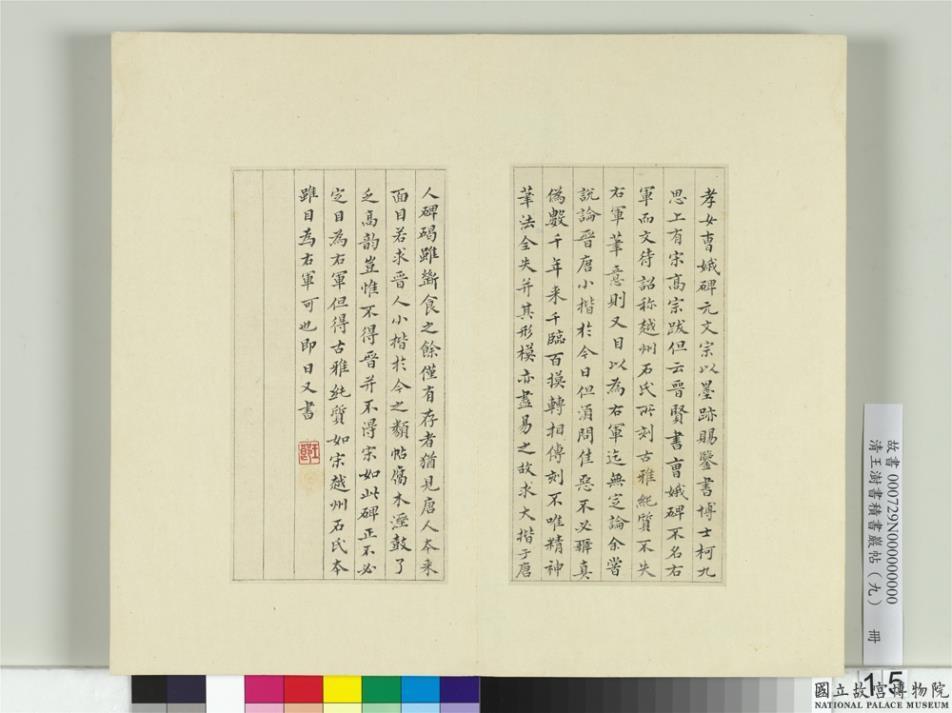 孝女曹娥碑元文宗以墨跡賜鑒書博士柯九
思上有宋高宗跋但云晉賢書曹娥碑不名右
軍而文待詔称越州石氏所刻古雅純質不失
右軍筆意則又目以為右軍迄無定論余嘗
說論晉唐小楷於今日但須問佳惡不必辨真
偽數千年来千臨百摸轉相傳刻不唯精神
筆法全失并其形模亦盡易之故求大揩于唐
人碑碣雖斷食之餘僅有存者猶見唐人本来
面目若求晉人小楷於今之類帖腐木溼鼓了
乏高韵豈惟不得晉并不得宋如此碑正不必
定目為右軍但得古雅純質如宋越州石氏本
雖目為右軍可也即日又書
故書 000729N000000000
清王澍書積書巖帖(九) 冊
15
國立故宮博物院
NATIONAL PALACE MUSEUM